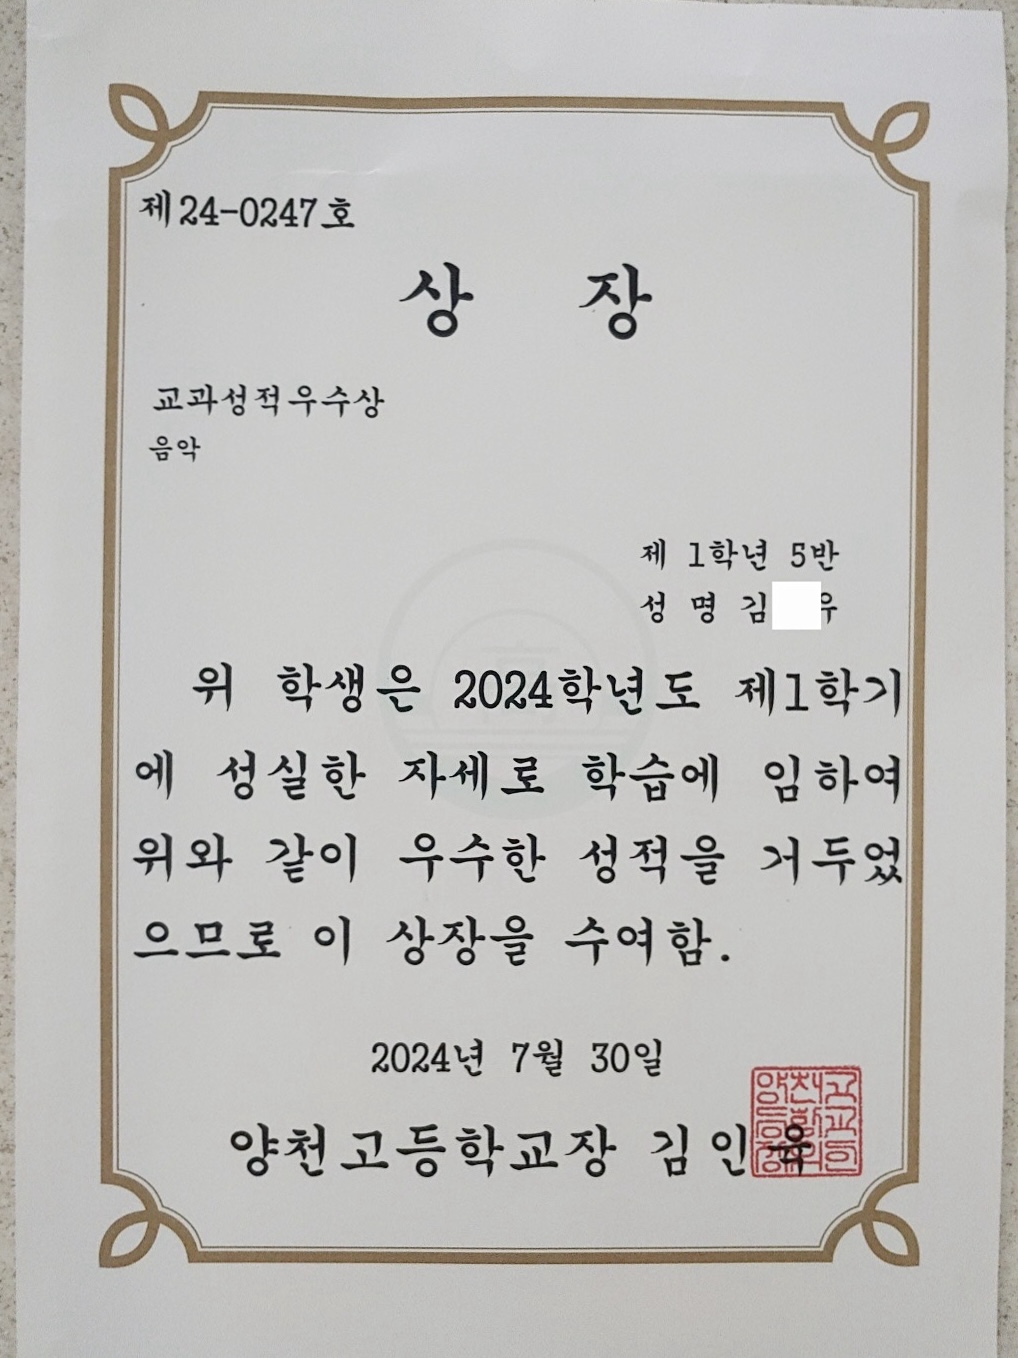 제24-0247호
상 장
교과성적우수상
음악
제 1학년 5반
성 명 김 우
위 학생은 2024학년도 제1학기
에 성실한 자세로 학습에 임하여
위와 같이 우수한 성적을 거두었
으므로 이 상장을 수여함.
2024년 7월 30일
양천고등학교장 김인욱